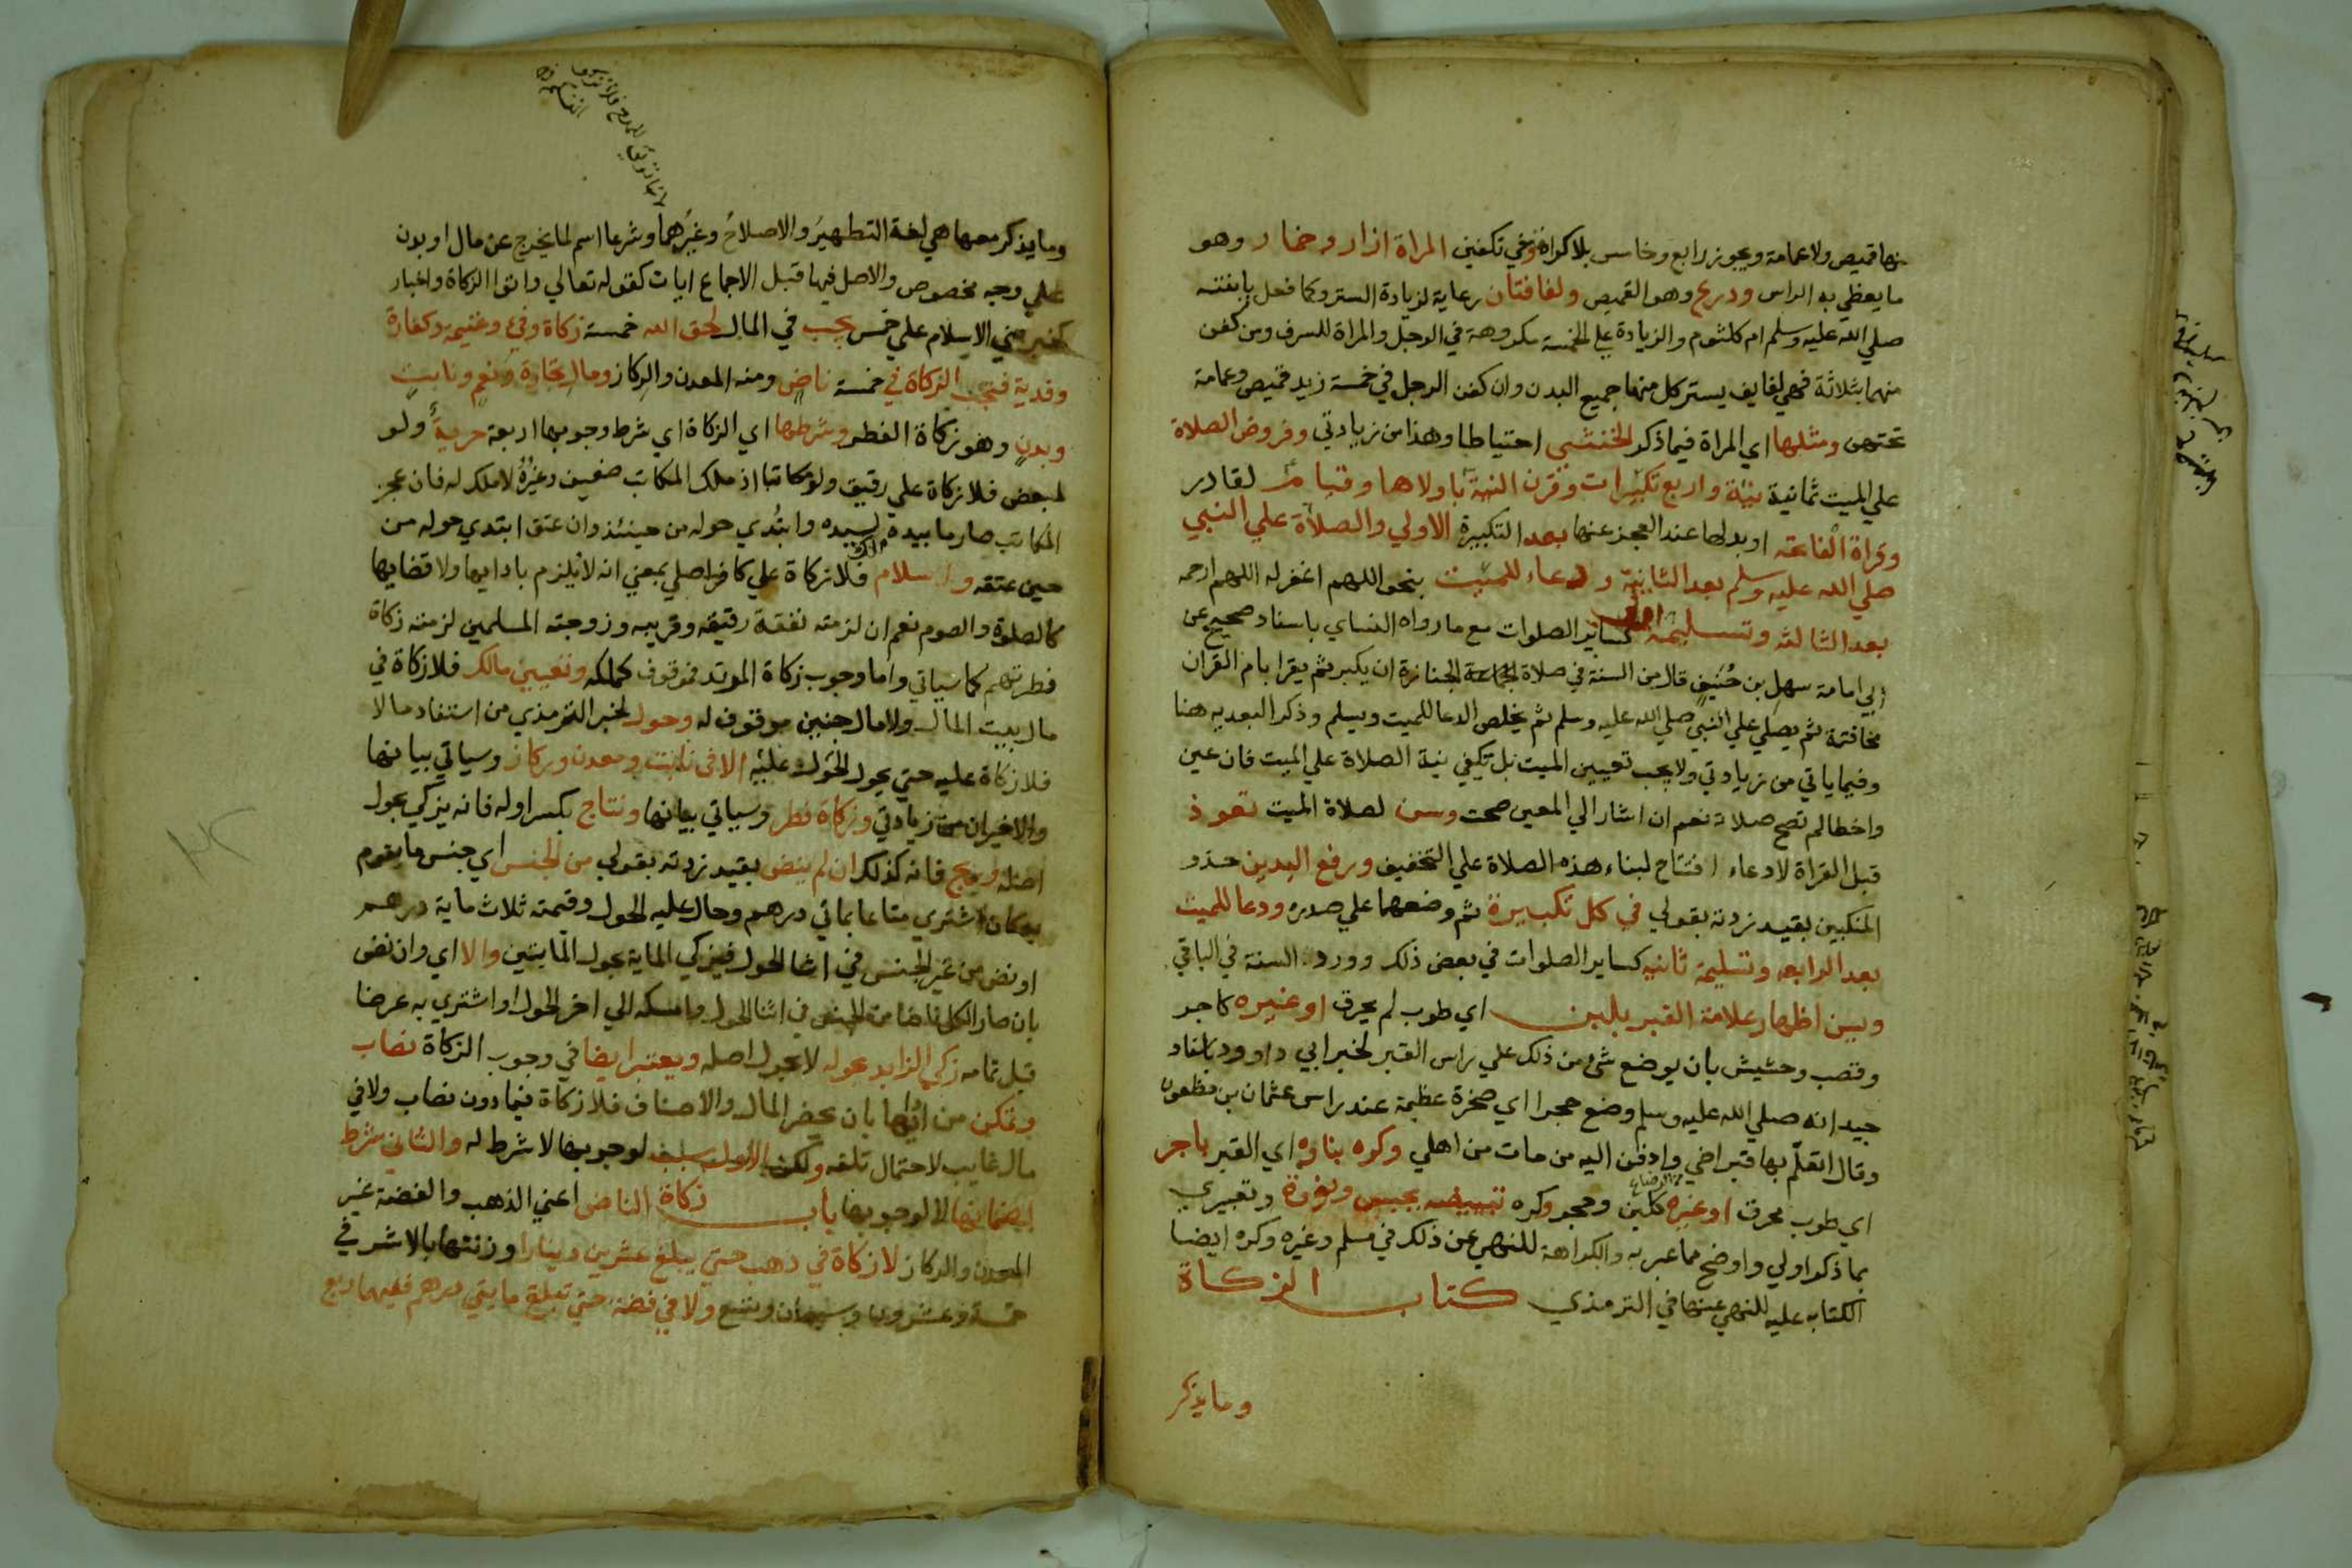 منها قميص ولا عمامة ويجوز رابع وخامس بلا كراهة وفي تكفين المراة ازار وخمار وهو
ما يغطي به الراس ودرع وهو القميص ولفافتان رعاية لزيادة الستر وكما فعل بابنته
صلي الله عليه وسلم ام كلثوم والزيادة علي الخمسة مكروهة في الرجل والمراة للسرف ومن كفن
منهما بثلاثة فهي لفايف يستر كل منها جميع البدن وان كفن الرجل في خمسة زيد قميص وعمامة
تحتهن ومثلها اي المراة فيما ذكر الخنثي احتياطا وهذا من زيادتي وفروض الصلاة
علي الميت ثمانية نية واربع تكبيرات وقرن النية باولاها وقيام لقادر
وقراة الفاتحه او بدلها عند العجز عنها بعد التكبيرة الاولي والصلاة علي النبي
صلي الله عليه وسلم بعد الثانية ودعاء للميت بنحو اللهم اغفر له اللهم ارحمه
بعد الثالثه وتسليمة اولي كساير الصلوات مع ما رواه النساي باسناد صحيح عن
ابي امامة سهل بن حنيف قال من السنة في صلاة الجنازة ان يكبر ثم يقرا بام القران
مخافتة ثم يصلي علي النبي صلي الله عليه وسلم ثم يخلص الدعا للميت ويسلم وذكر البعديه هنا
وفيما ياتي من زيادتي ولا يجب تعيين الميت بل تكفي نية الصلاة علي الميت فان عين
واخطا لم تصح صلاته نعم ان اشار الي المعين صحت وسن لصلاة الميت تعوذ
قبل القراة لا دعاء افتتاح لبناء هذه الصلاة علي التخفيف ورفع اليدين حذو
المنكبين بقيد زدته بقولي في كل تكبيرة ثم وضعهما علي صدره ودعا للميت
بعد الرابعه وتسليمة ثانيه كساير الصلوات في بعض ذلك وورد السنة في الباقي
وسن اظهار علامة القبر بلبن اي طوب لم يحرق او غيره كاجر
وقصب وحشيش بان يوضع شئ من ذلك علي راس القبر لخبر ابي داوود باسناد
جيد انه صلي الله عليه وسلم وضع حجرا اي صخرة عظيمة عند راس عثمان بن مظعون
وقال اتعلم بها قبر اخي وادفن اليه من مات من اهلي وكره بناوه اي القبر باجر
اي طوب محرق او غيره كلبن وحجر وكره تبييضه بجبس ونورة وتعبيري
بما ذكر اولي واوضح مما عبر به والكراهة للنهي عن ذلك في مسلم وغيره وكره ايضا
الكتابه عليه للنهي عنها في الترمذي كتاب الزكاة
وما يذكر
وما يذكر معها هي لغة التطهير والاصلاح وغيرهما وشرعا اسم لما يخرج عن مال او بدن
علي وجه مخصوص والاصل فيها قبل الاجماع ايات كقوله تعالي واتوا الزكاة واخبار
كخبر بني الاسلام علي خمس يجب في المال لحق الله خمسة زكاة وفئ وغنيمة وكفارة
وفدية فتجب الزكاة في خمسة ناض ومنه المعدن والركاز ومال تجارة ونعم ونابت
وبدن وهو زكاة الفطر وشرطها اي الزكاة اي شرط وجوبها اربعة حرية ولو
لمبعض فلا زكاة علي رقيق ولو مكاتبا اذ ملك المكاتب ضعيف وغيره لا ملك له فان عجز
المكاتب صار ما بيده لسيده وابتدي حوله من حينئذ وان عتق ابتدي حوله من
حين عتقه واسلام فلا زكاة علي كافر اصلي بمعني انه لا يلزم باداايها ولا قضايها
كالصلوة والصوم نعم ان لزمته نفقة رقيقه وقريبه وزوجته المسلمين لزمته زكاة
فطرتهم كما سياتي واما وجوب زكاة المرتد فموقوف كملكه وتعيين مالك فلا زكاة في
مال بيت المال ولا مال جنين موقوف له وحول لخبر الترمذي من استفاد مالا
فلا زكاة عليه حتي يحول الحول عليه الا في نابت ومعدن وركاز وسياتي بيانها
والاخيران من زيادتي وزكاة فطر وسياتي بيانها ونتاج بكسر اوله فانه يزكي بحول
اصله وربح فانه كذلك ان لم ينض بقيد زدته بقولي من الجنس اي جنس ما يقوم
به كان اشتري متاعا بماتي درهم وحال عليه الحول وقيمته ثلاث ماية درهم
او نض من غير الجنس في اثنا الحول فيزكي الماية بحول المايتين والا اي وان نض
بان صار الكل ناضا من الجنس في اثنا الحول وامسكه الي اخر الحول او اشتري به عرضا
قبل تمامه زكي الزايد بحوله لا بحول اصله ويعتبر ايضا في وجوب الزكاة نصاب
وتمكن من اداايها بان يحضر المال والاصناف فلا زكاة فيما دون نصاب ولا في
مال غايب لاحتمال تلفه ولكن الاول سبب لوجوبها لا شرط له والثاني شرط
لضمانها لا لوجوبها باب زكاة الناض اعني الذهب والفضة غير
المعدن والركاز لا زكاة في ذهب حتي يبلغ عشرين دينارا وزنتها بالاشرفي
خمسة وعشرون وسبعان وتسع ولا في فضة حتي تبلغ مايتي درهم ففيهما ربع